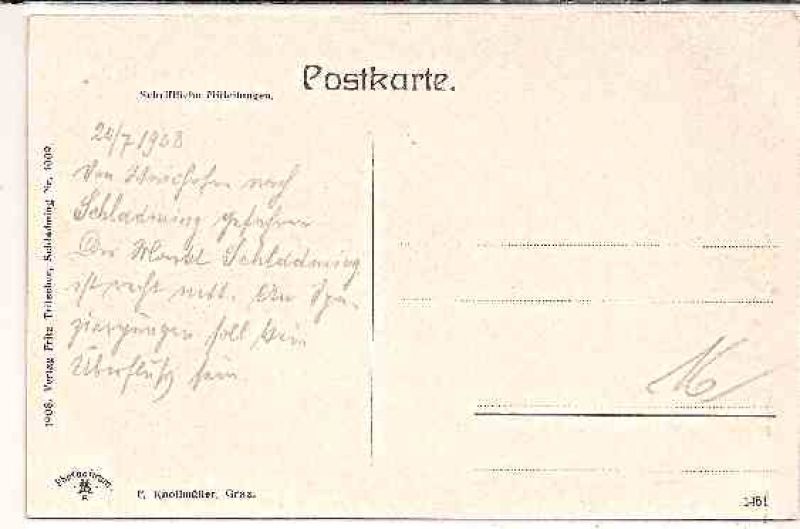 Postkarte.
Schriftliche Mitteilungen.
24/7 1908
Von nach
Schladming gefahren
Der Markt Schladming
ist recht nett. An Spa-
ziergängen soll kein
Überfluß sein
1908. Verlag Fritz Tritscher, Schladming Nr. 1009
16
F. Knollmüller, Graz.